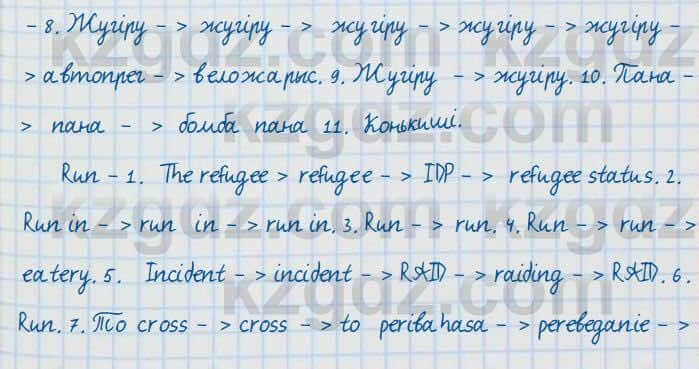 - 8. Жүгіру - > жүгіру - > жүгіру - > жүгіру - > жүгіру -
> автопрег - > веложарыс. 9. Жүгіру - > жүгіру. 10. Пана -
> пана - > бомба пана 11. Конькиші.
Run - 1. The refugee > refugee - > IDP - > refugee status. 2.
Run in - > run in - > run in. 3. Run - > run. 4. Run - > run - >
eatery. 5. Incident - > incident - > RAID - > raiding - > RAID. 6.
Run. 7. To cross - > cross - > to peribahasa - > perebeganie - >
kzgdz.com